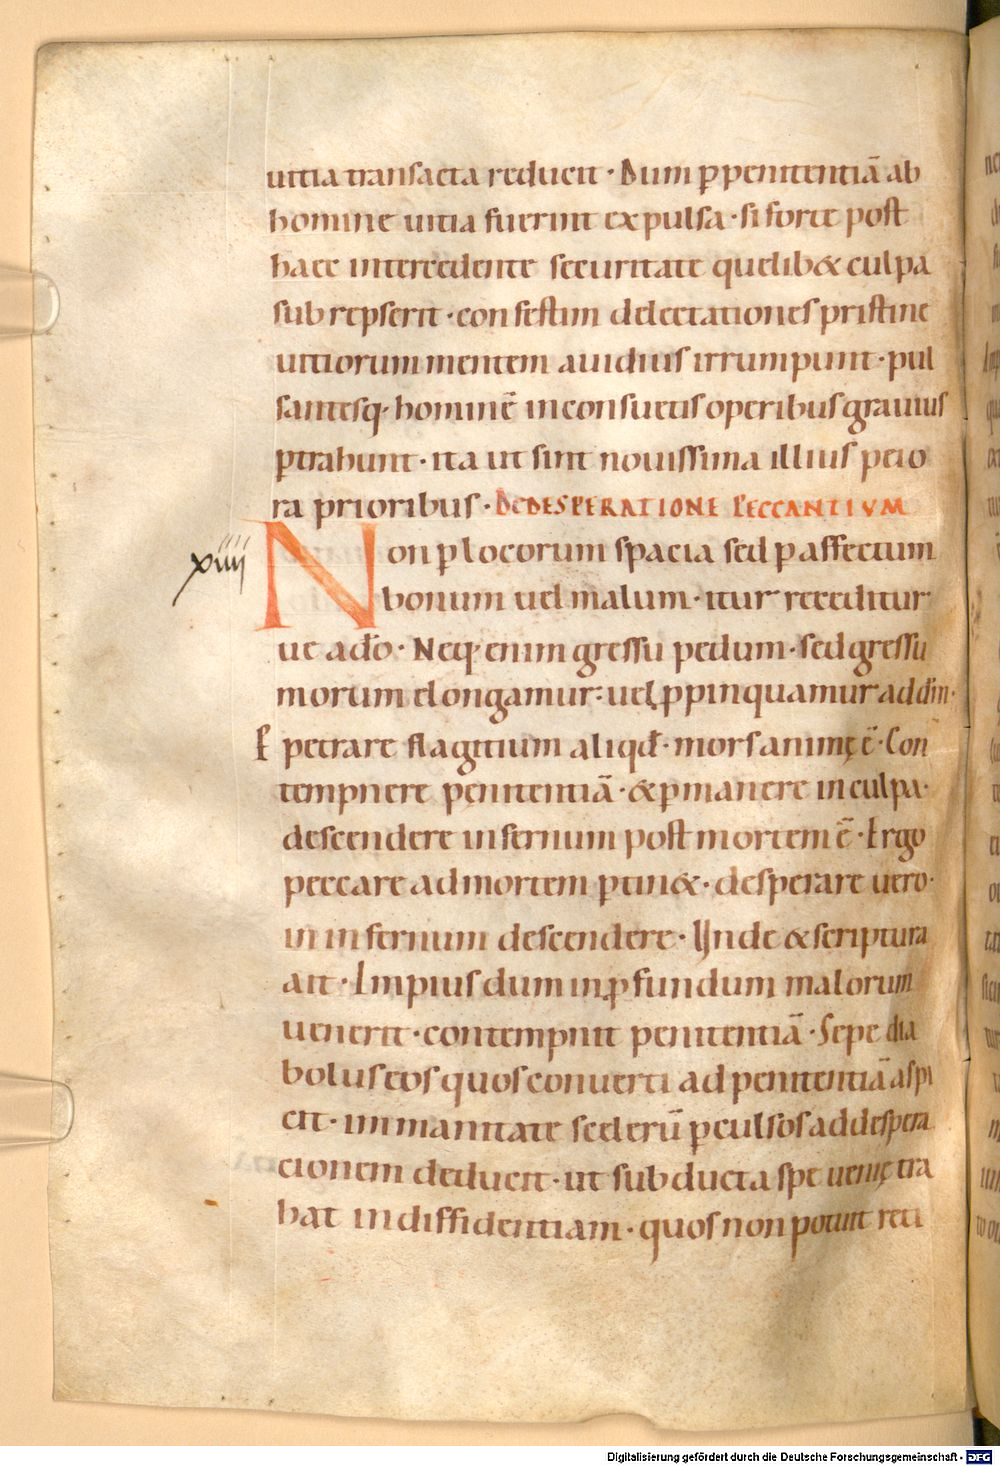 uitia transacta reducit · Dum ꝑ penitentiā ab
homine uitia fuerint expulsa · si forte post
haec intercedente securitate quelib& culpa
subrepserit · confestim delectationes pristine
uitiorum mentem auidius irrumpunt · pul
santesq· hominē inconsuetis operibus grauius
ꝑtrahunt · ita ut sint nouissima illius peio
ra prioribus · DE DESPERATIONE PECCANTIVM
xiiii Non ꝑ locorum spacia sed ꝑ affectum
bonum uel malum · itur receditur
ue a dō · Neq· enim gressu pedum · sed gressu
morum elongamur: uel ꝓpinquamur ad dm̄·
Perpetrare flagitium aliqđ · mors animę ē · Con
tempnere penitentiā · & ꝑmanere in culpa·
descendere infernum post mortem ē · Ergo
peccare ad mortem ꝑtin& · desperare uero·
in infernum descendere · Unde & scriptura
ait · Impius dum in ꝓfundum malorum
uenerit · contempnit penitentiā · Sepe dia
bolus eos quos conuerti ad penitentiā aspi
cit · immanitate scelerū ꝑculsos ad despera
cionem deducit · ut subducta spe uenię tra
hat in diffidentiam · quos non potuit reti
Digitalisierung gefördert durch die Deutsche Forschungsgemeinschaft - DFG